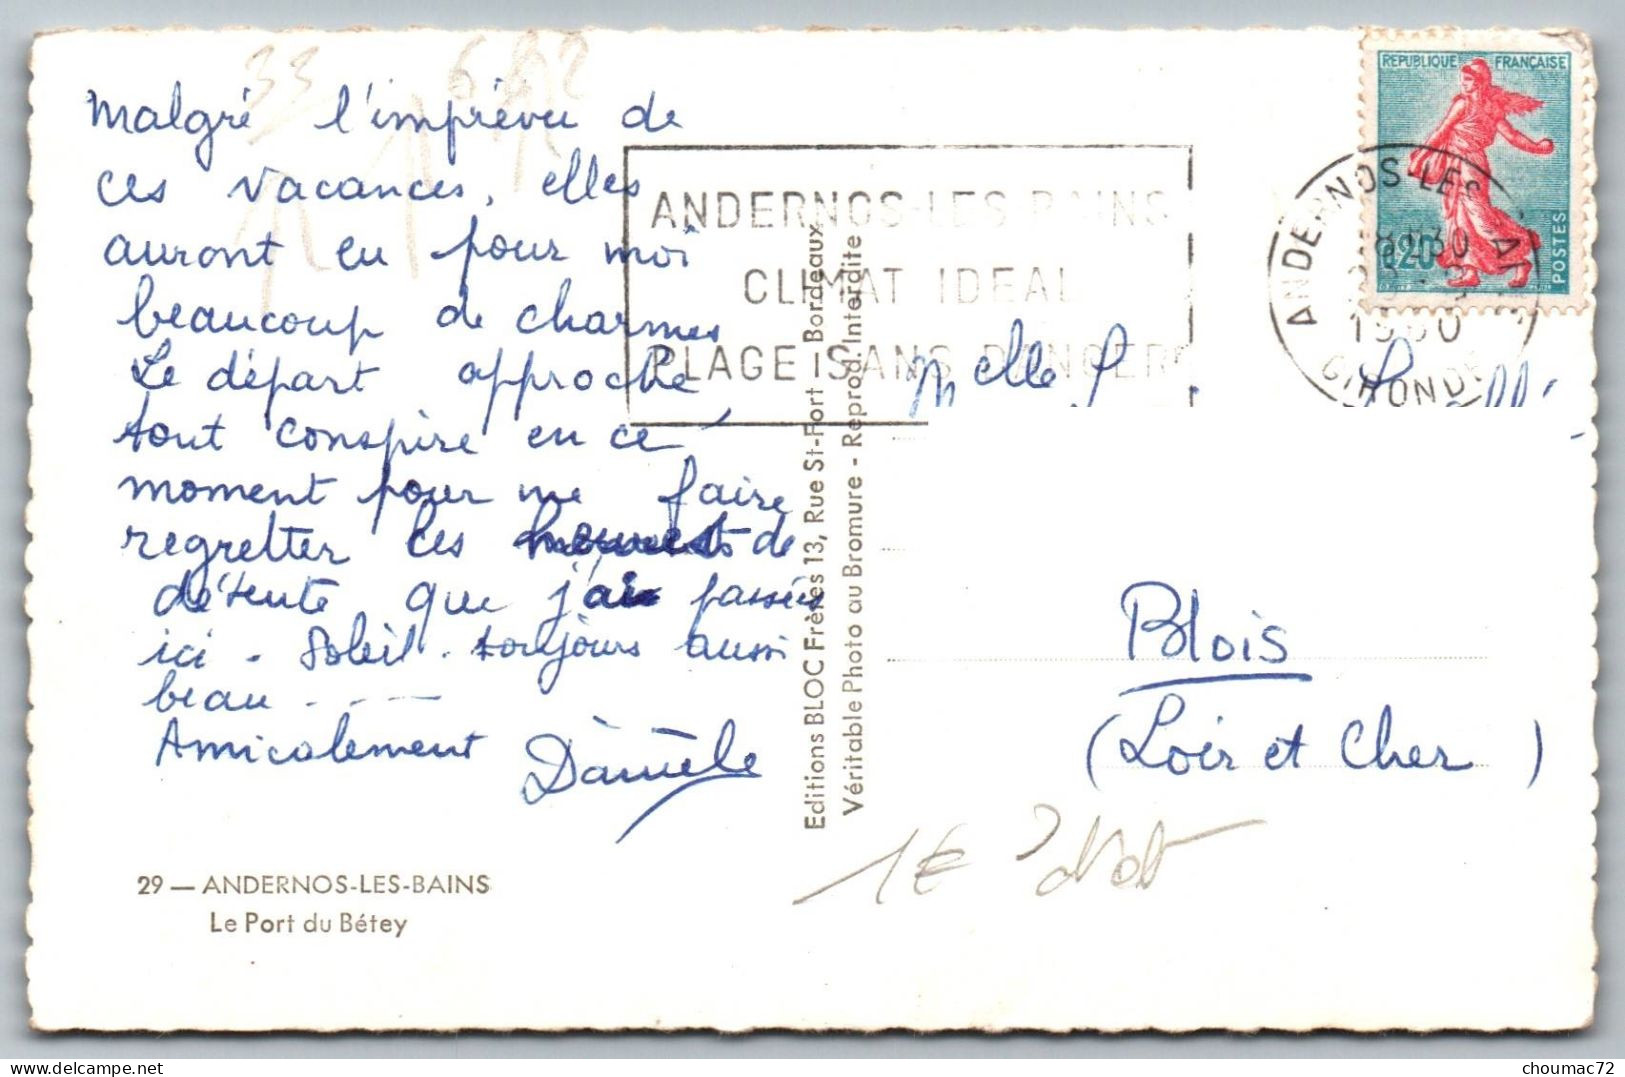 Malgré l'imprévu de
ces vacances, elles
auront eu pour moi
beaucoup de charmes
Le départ approche,
tout conspire en ce
moment pour me faire
regretter les de
détente que j'ai passés
ici. Soleil. toujours aussi
beau . . . —
Amicalement Danièle
29 — ANDERNOS-LES-BAINS
Le Port du Bétey
Editions BLOC Frères 13, Rue St-Fort - Bordeaux
Véritable Photo au Bromure - Reprod. Interdite
ANDERNOS-LES-BAINS
CLIMAT IDEAL
PLAGE SANS DANGER
REPUBLIQUE FRANÇAISE
0,20
POSTES
ANDERNOS-LES
1960
GIRONDE
Melle
Blois
(Loir et Cher)
33
1€
choumac72